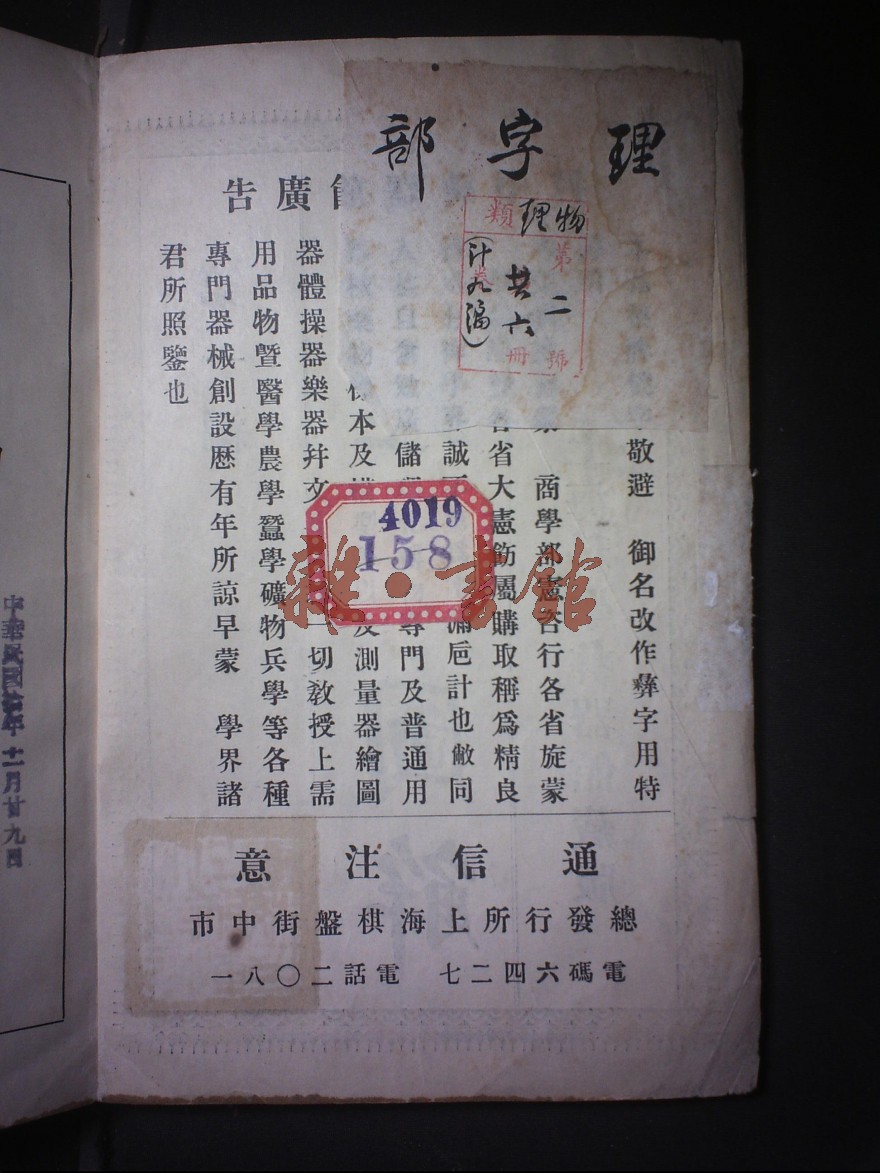 理字部
物理類
第二號
共六冊
計九編
館廣告
敬避 御名改作彝字用特
商學部憲咨行各省旋蒙
各省大憲飭屬購取稱爲精良
誠
漏巵計也敝同
儲
專門及普通用
本及
及測量器繪圖
器體操器樂器幷文
一切敎授上需
用品物曁醫學農學蠶學礦物兵學等各種
專門器械創設歷有年所諒早蒙 學界諸
君所照鑒也
4019
158
雜·書館
通信注意
總發行所上海棋盤街中市
電碼六四二七 電話二〇八一
中華民國拾年十一月廿九日